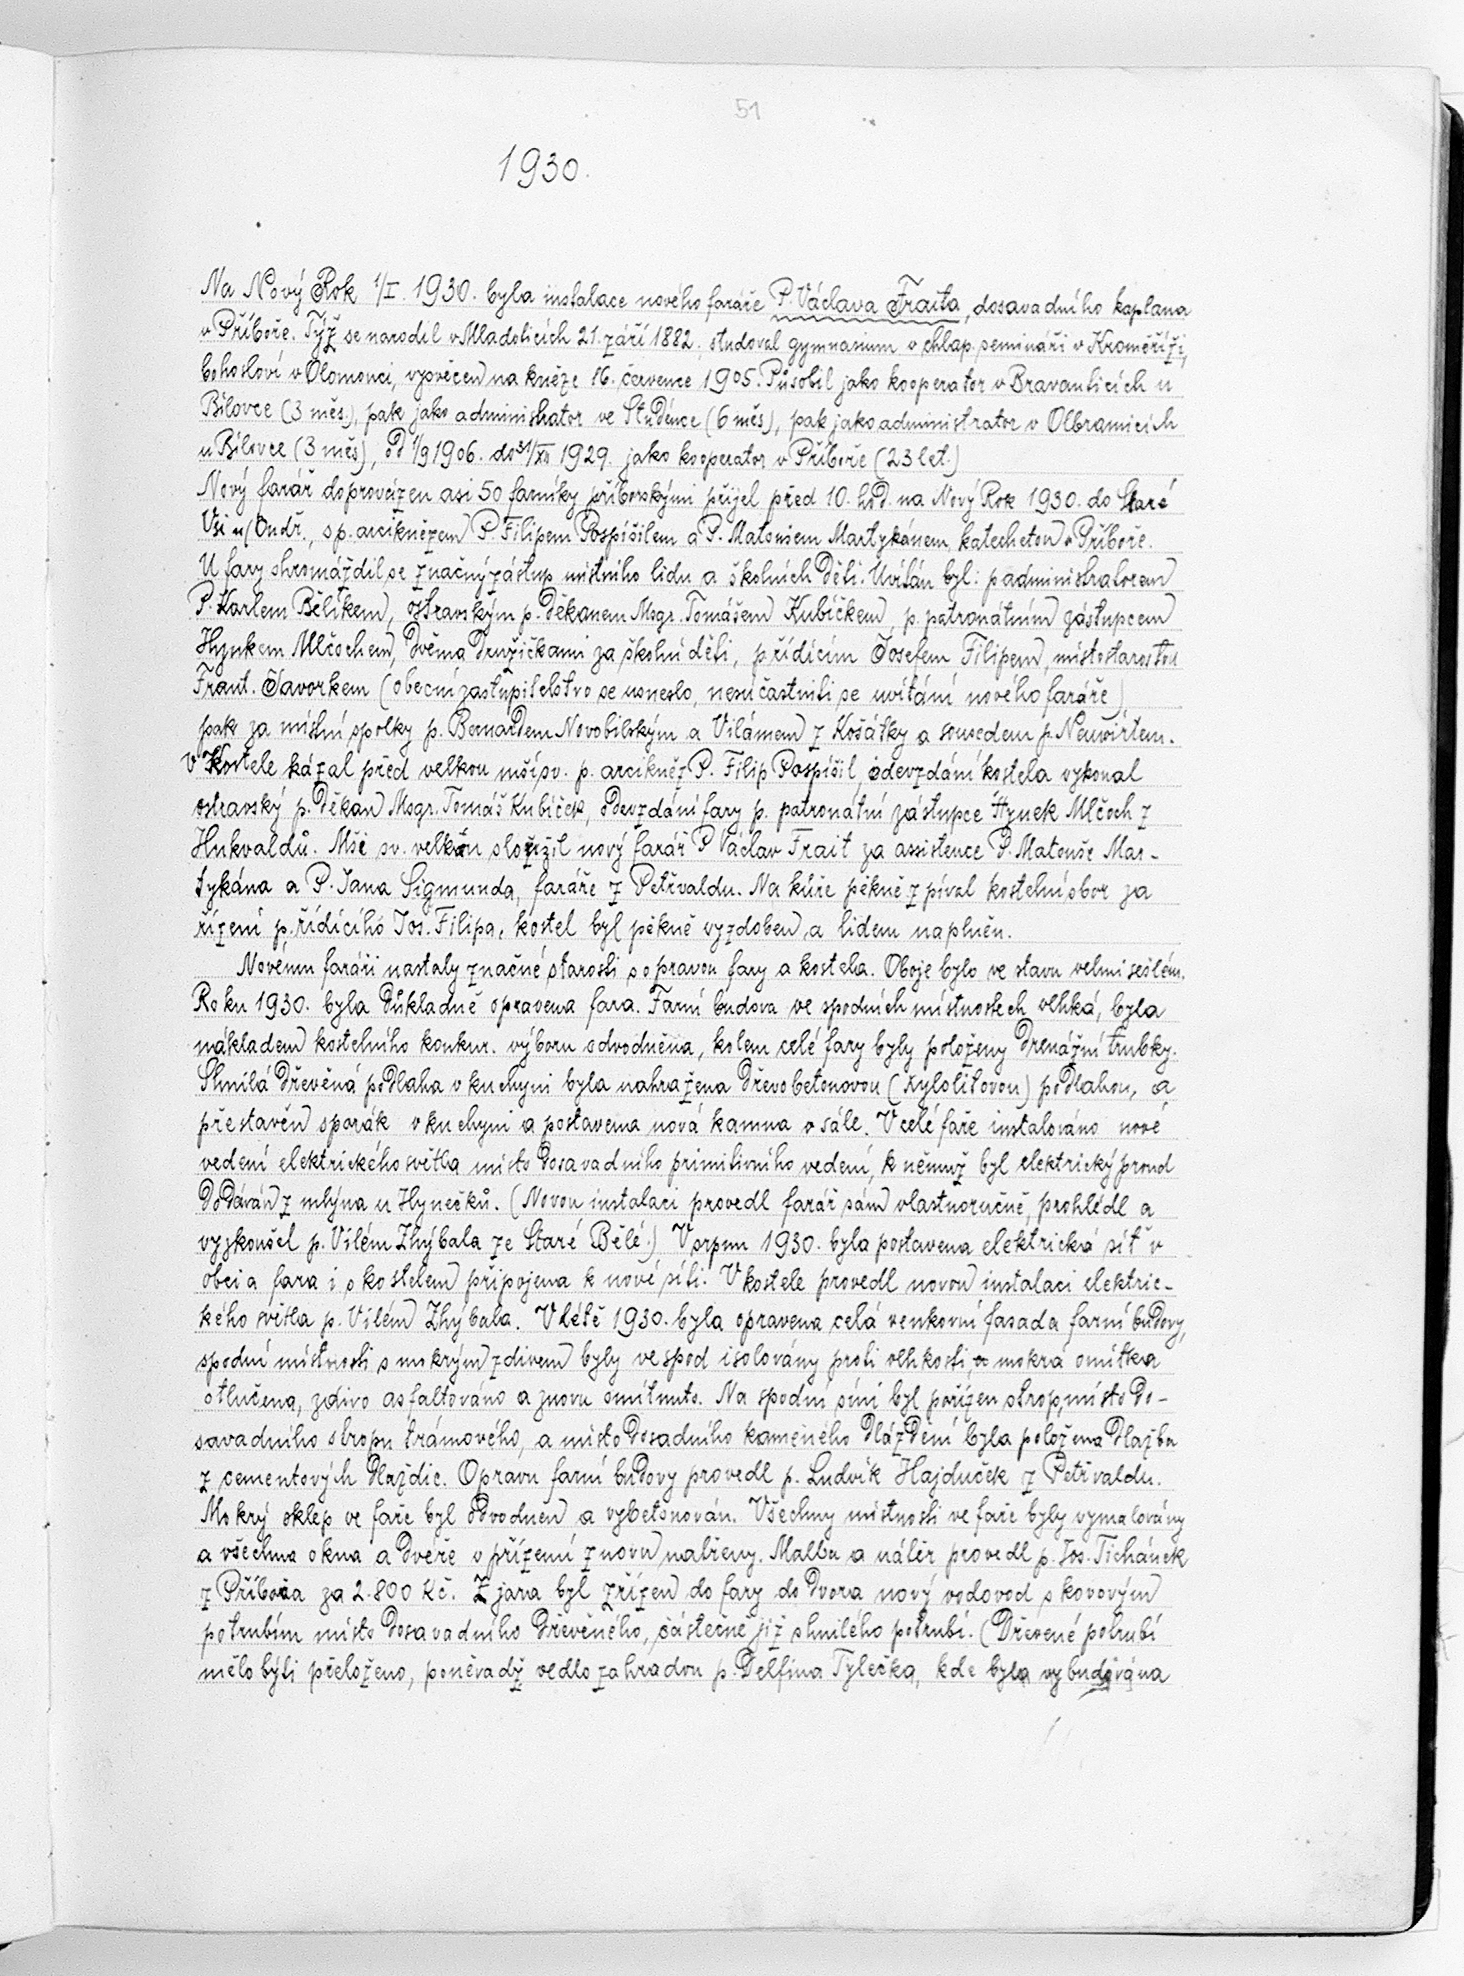 51
1930.
Na Nový Rok 1/I. 1930. byla instalace nového faráře P. Václava Fraita, dosavadního kaplana
v Příboře. Týž se narodil v Mladolicích 21. září 1882. studoval gymnasium v chlap. semináři v Kroměříži,
bohosloví v Olomouci, vysvěcen na kněze 16. července 1905. Působil jako kooperator v Bravanticích u
Bílovce (3 měs.), pak jako administrator ve Studénce (6 měs), pak jako administrator v Olbramicích
u Bílovce (3 měs), od 1/9 1906. do 31/XII 1929. jako kooperator v Příboře (23 let.)
Nový farář doprovázen asi 50 farníky příborskými přijel před 10. hod. na Nový Rok 1930. do Staré
Vsi u/Ondř., s p. arciknězem P. Filipem Pospíšilem a P. Matoušem Martykánem, katechetou v Příboře.
U fary shromáždil se značný zástup místního lidu a školních dětí. Uvítán byl: p. administratorem
P. Karlem Bělíkem, ostravským p. děkanem Msgr. Tomášem Kubíčkem, p. patronátním zástupcem
Hynkem Mlčochem, dvěma družičkami za školní děti, p. řídícím Josefem Filipem, místostarostou
Frant. Javorkem (obecní zastupitelstvo se usneslo, nesúčastniti se uvítání nového faráře),
pak za místní spolky p. Bernardem Novobilským a Vilámem z Košátky a sousedem p. Neuwirtem.
V kostele kázal před velkou mší sv. p. arcikněz P. Filip Pospíšil, odevzdání kostela vykonal
ostravský p. děkan Msgr. Tomáš Kubíček, odevzdání fary p. patronátní zástupce Hynek Mlčoch z
Hukvaldů. Mši sv. velkou sloužil nový farář P. Václav Frait za assistence P. Matouše Mar-
tykána a P. Jana Sigmunda, faráře z Petřvaldu. Na kůře pěkně zpíval kostelní sbor za
řízení p. řídícího Jos. Filipa, kostel byl pěkně vyzdoben a lidem naplněn.
Novému faráři nastaly značné starosti s opravou fary a kostela. Oboje bylo ve stavu velmi sešlém.
Roku 1930. byla důkladně opravena fara. Farní budova ve spodních místnostech vlhká, byla
nákladem kostelního konkur. výboru odvodněna, kolem celé fary byly položeny drenážní trubky.
Shnilá dřevěná podlaha v kuchyni byla nahražena dřevobetonovou (xylolitovou) podlahou, a
přestavěn sporák v kuchyni a postavena nová kamna v sále. V celé faře instalováno nové
vedení elektrického světla místo dosavadního primitivního vedení, k němuž byl elektrický proud
dodáván z mlýna u Hynečků. (Novou instalaci provedl farář sám vlastnoručně, prohlédl a
vyzkoušel p. Vilém Zhýbala ze Staré Bělé.) V srpnu 1930. byla postavena elektrická síť v
obci a fara i s kostelem připojena k nové síti. V kostele provedl novou instalaci elektric-
kého světla p. Vilém Zhýbala. V létě 1930. byla opravena celá venkovní fasada farní budovy,
spodní místnosti s mokrým zdivem byly vespod isolovány proti vlhkosti, mokrá omítka
otlučena, zdivo asfaltováno a znovu omítnuto. Na spodní síni byl pořízen strop, místo do-
savadního stropu trámového, a místo dosadního kameného dláždění byla položena dlažba
z cementových dlaždic. Opravu farní budovy provedl p. Ludvík Hajduček z Petřvaldu.
Mokrý sklep ve faře byl odvodněn a vybetonován. Všechny místnosti ve faře byly vymalovány
a všechna okna a dveře v přízemí znovu natřeny. Malbu a nátěr provedl p. Jos. Tichánek
z Příbora za 2.800 Kč. Z jara byl zřízen do fary do dvora nový vodovod s kovovým
potrubím místo dosavadního dřevěného, částečně již shnilého potrubí. (Dřevené potrubí
mělo býti přeloženo, poněvadž vedlo zahradou p. Delfína Tylečka, kde byla vybudována